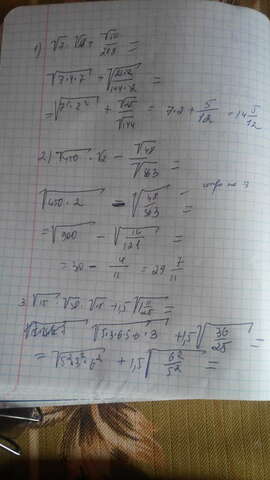 1) √7 · √28 + √50/√288 =
√7·4·7 + √25·2/144·2 =
= √7²·2² + √25/√144 = 7·2 + 5/12 = 14 5/12
2) √450 · √2 − √48/√363 =
√450·2 − √48/363 =
= √900 − √16/121 =
= 30 − 4/11 = 29 7/11
3. √15 √30 √18 + 1,5 √1 11/25 =
√5·3·6·5·6·3 + 1,5 √36/25 =
= √5²·3²·6² + 1,5 √6²/5² =